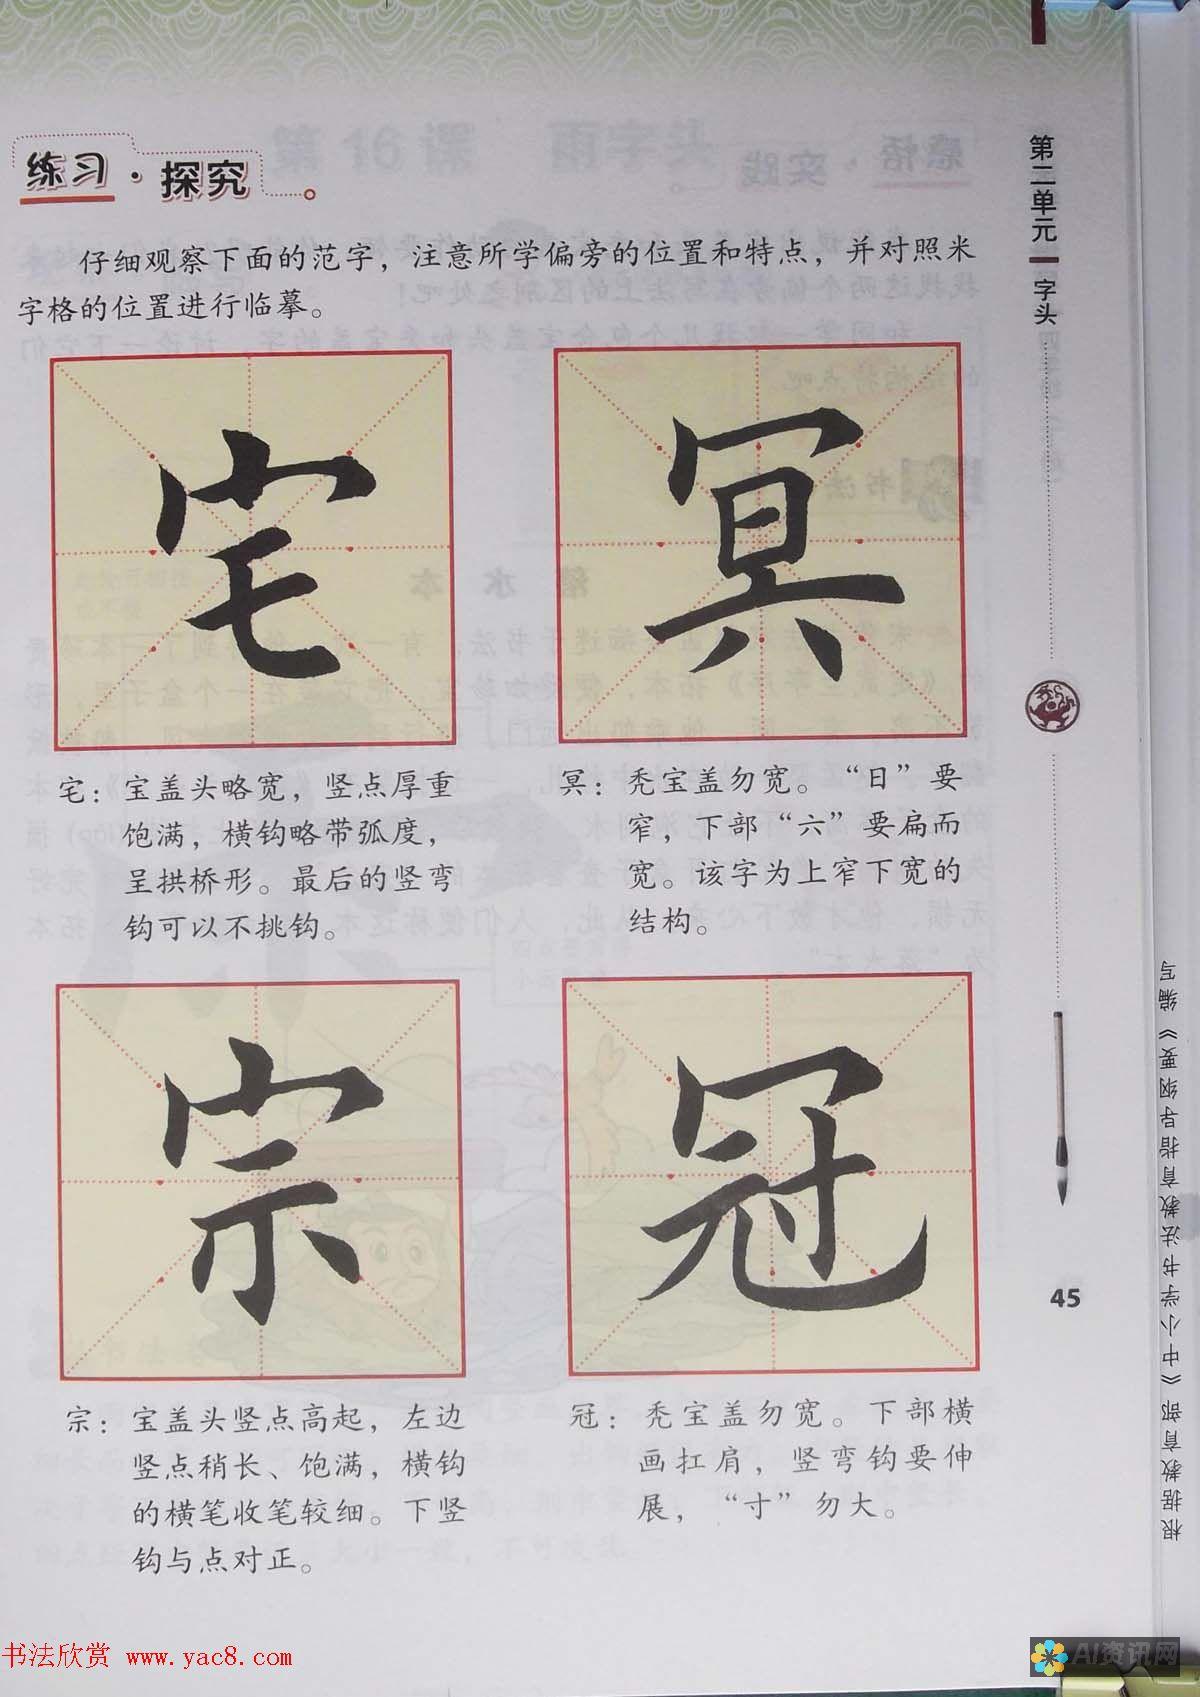 练习·探究
仔细观察下面的范字，注意所学偏旁的位置和特点，并对照米
字格的位置进行临摹。
宅
冥
宅：宝盖头略宽，竖点厚重
饱满，横钩略带弧度，
呈拱桥形。最后的竖弯
钩可以不挑钩。
冥：秃宝盖勿宽。“日”要
窄，下部“六”要扁而
宽。该字为上窄下宽的
结构。
宗
冠
宗：宝盖头竖点高起，左边
竖点稍长、饱满，横钩
的横笔收笔较细。下竖
钩与点对正。
冠：秃宝盖勿宽。下部横
画扛肩，竖弯钩要伸
展，“寸”勿大。
第二单元
字头
45
根据教育部《中小学书法教育指导纲要》编写
书法欣赏 www.yac8.com
AI资讯网